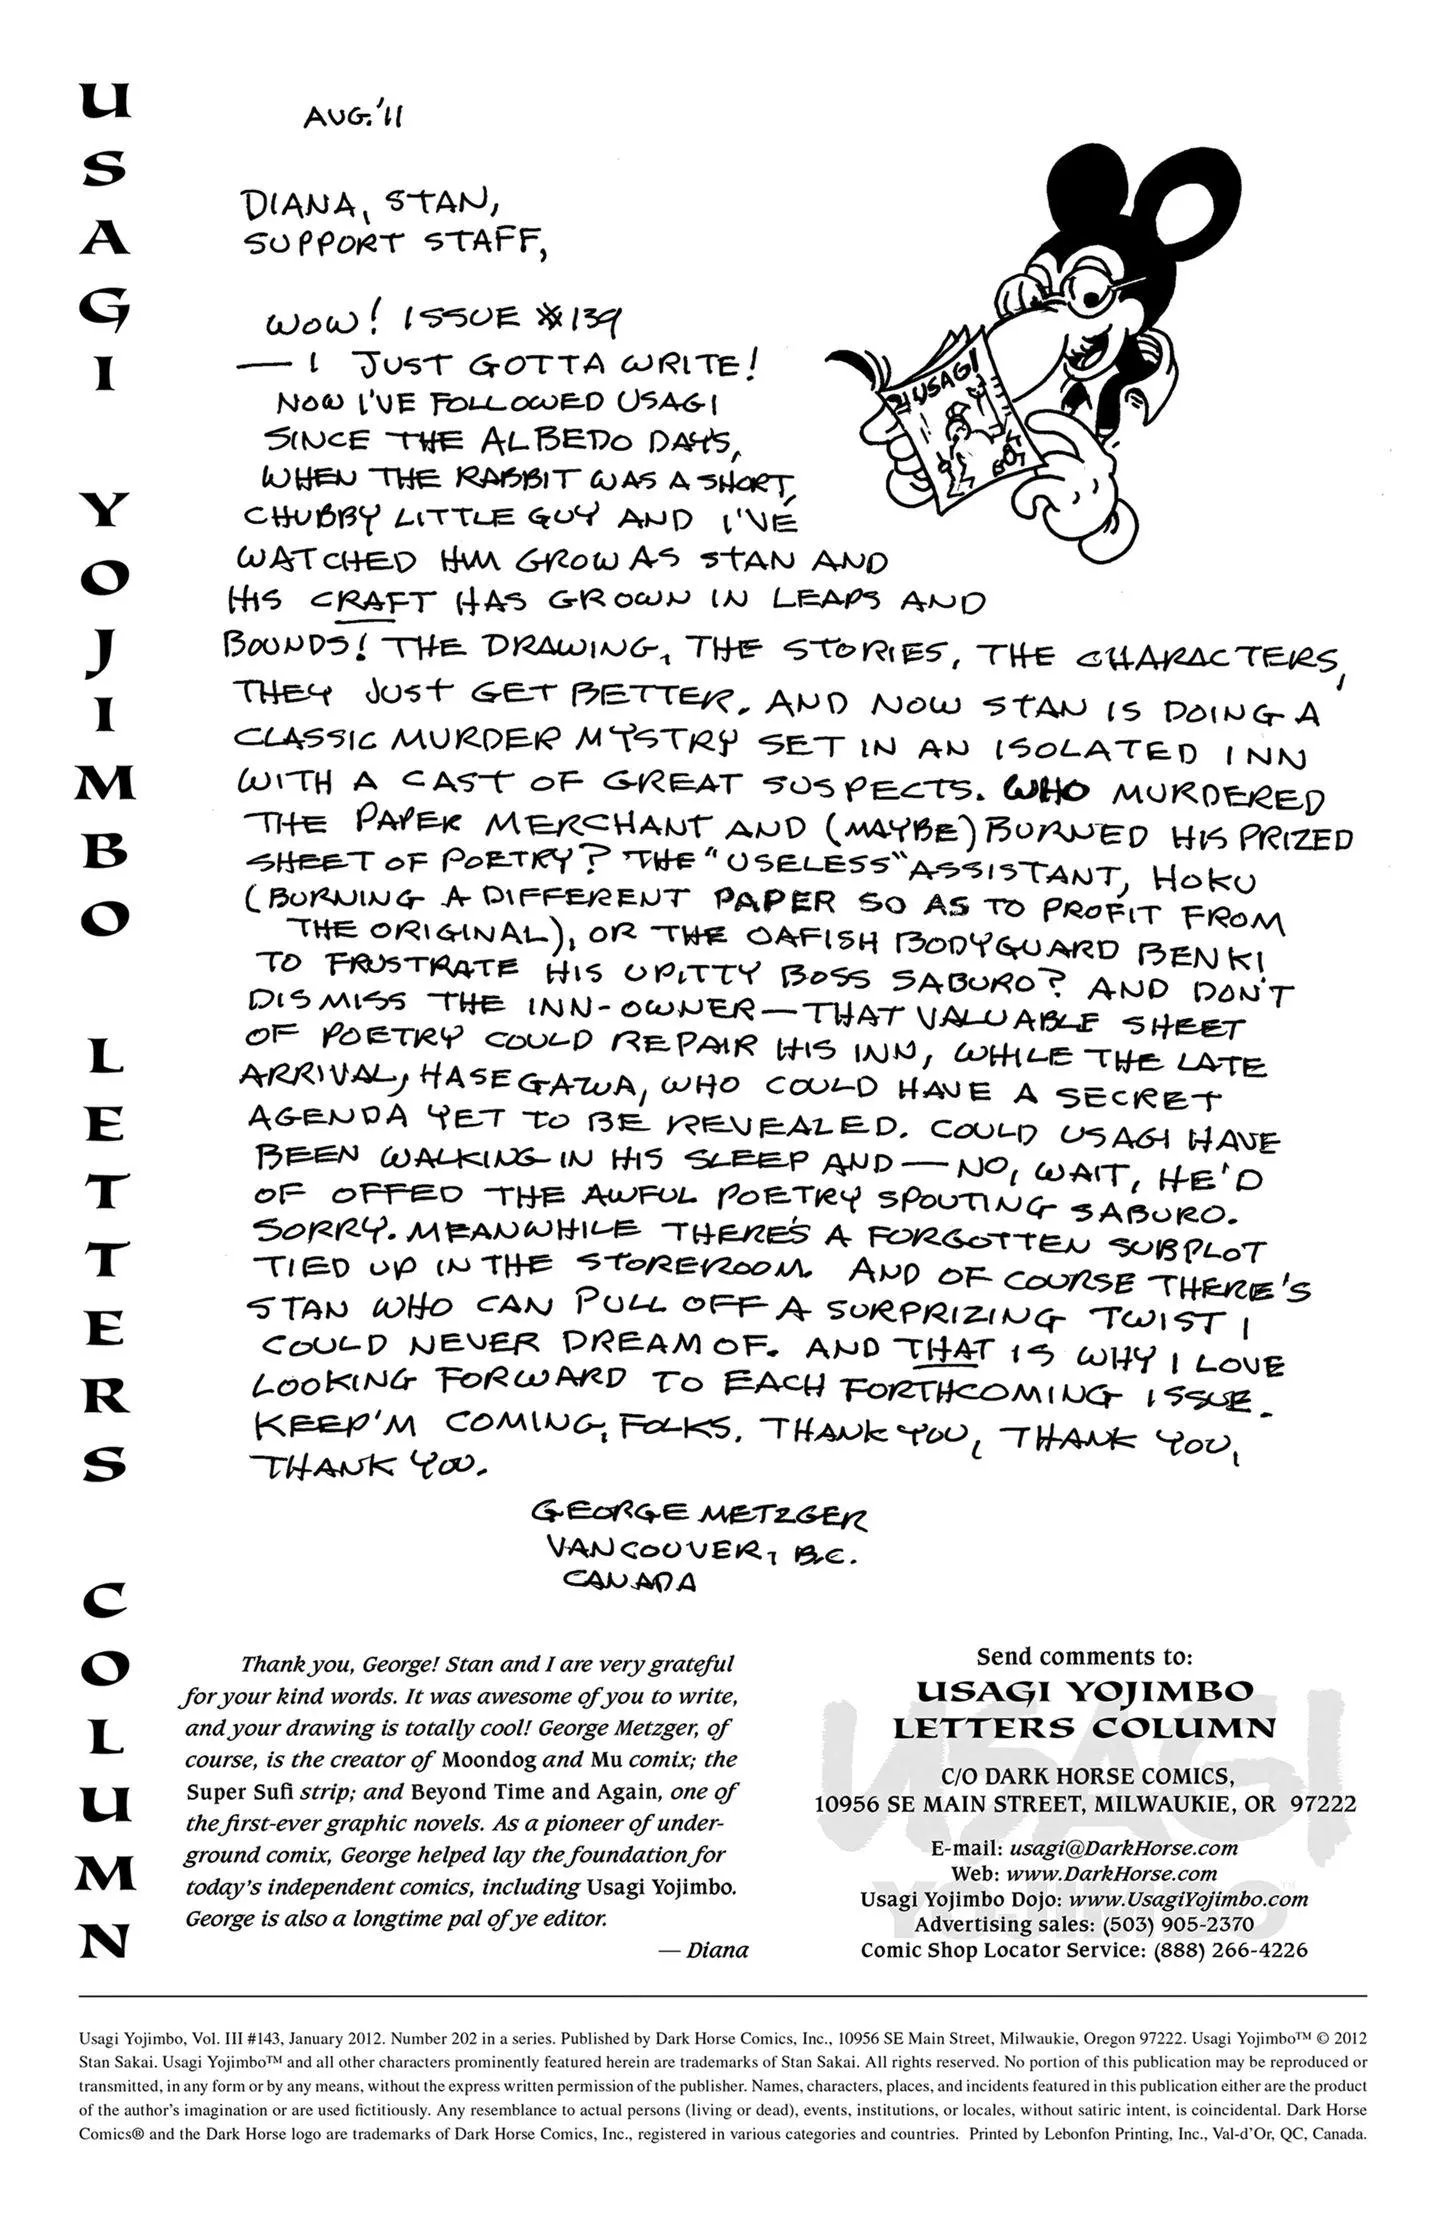 USAGI YOJIMBO LETTERS COLUMN
AUG. '11
DIANA, STAN,
SUPPORT STAFF,
WOW! ISSUE #139
— I JUST GOTTA WRITE!
NOW I'VE FOLLOWED USAGI
SINCE THE ALBEDO DAYS,
WHEN THE RABBIT WAS A SHORT,
CHUBBY LITTLE GUY AND I'VE
WATCHED HIM GROW AS STAN AND
HIS CRAFT HAS GROWN IN LEAPS AND
BOUNDS! THE DRAWING, THE STORIES, THE CHARACTERS,
THEY JUST GET BETTER. AND NOW STAN IS DOING A
CLASSIC MURDER MYSTRY SET IN AN ISOLATED INN
WITH A CAST OF GREAT SUSPECTS. WHO MURDERED
THE PAPER MERCHANT AND (MAYBE) BURNED HIS PRIZED
SHEET OF POETRY? THE "USELESS" ASSISTANT, HOKU
(BURNING A DIFFERENT PAPER SO AS TO PROFIT FROM
THE ORIGINAL), OR THE OAFISH BODYGUARD BENKI
TO FRUSTRATE HIS UPITTY BOSS SABURO? AND DON'T
DISMISS THE INN-OWNER — THAT VALUABLE SHEET
OF POETRY COULD REPAIR HIS INN, WHILE THE LATE
ARRIVAL, HASEGAWA, WHO COULD HAVE A SECRET
AGENDA YET TO BE REVEALED. COULD USAGI HAVE
BEEN WALKING IN HIS SLEEP AND — NO, WAIT, HE'D
OF OFFED THE AWFUL POETRY SPOUTING SABURO.
SORRY. MEANWHILE THERE'S A FORGOTTEN SUBPLOT
TIED UP IN THE STOREROOM. AND OF COURSE THERE'S
STAN WHO CAN PULL OFF A SURPRIZING TWIST I
COULD NEVER DREAM OF. AND THAT IS WHY I LOVE
LOOKING FORWARD TO EACH FORTHCOMING ISSUE.
KEEP'M COMING, FOLKS. THANK YOU, THANK YOU,
THANK YOU.
GEORGE METZGER
VANCOUVER, B.C.
CANADA
USAGI
Thank you, George! Stan and I are very grateful
for your kind words. It was awesome of you to write,
and your drawing is totally cool! George Metzger, of
course, is the creator of Moondog and Mu comix; the
Super Sufi strip; and Beyond Time and Again, one of
the first-ever graphic novels. As a pioneer of under-
ground comix, George helped lay the foundation for
today's independent comics, including Usagi Yojimbo.
George is also a longtime pal of ye editor.
— Diana
Send comments to:
USAGI YOJIMBO
LETTERS COLUMN
C/O DARK HORSE COMICS,
10956 SE MAIN STREET, MILWAUKIE, OR 97222
E-mail: usagi@DarkHorse.com
Web: www.DarkHorse.com
Usagi Yojimbo Dojo: www.UsagiYojimbo.com
Advertising sales: (503) 905-2370
Comic Shop Locator Service: (888) 266-4226
USAGI
YOJIMBO™
Usagi Yojimbo, Vol. III #143, January 2012. Number 202 in a series. Published by Dark Horse Comics, Inc., 10956 SE Main Street, Milwaukie, Oregon 97222. Usagi Yojimbo™ © 2012
Stan Sakai. Usagi Yojimbo™ and all other characters prominently featured herein are trademarks of Stan Sakai. All rights reserved. No portion of this publication may be reproduced or
transmitted, in any form or by any means, without the express written permission of the publisher. Names, characters, places, and incidents featured in this publication either are the product
of the author's imagination or are used fictitiously. Any resemblance to actual persons (living or dead), events, institutions, or locales, without satiric intent, is coincidental. Dark Horse
Comics® and the Dark Horse logo are trademarks of Dark Horse Comics, Inc., registered in various categories and countries. Printed by Lebonfon Printing, Inc., Val-d'Or, QC, Canada.